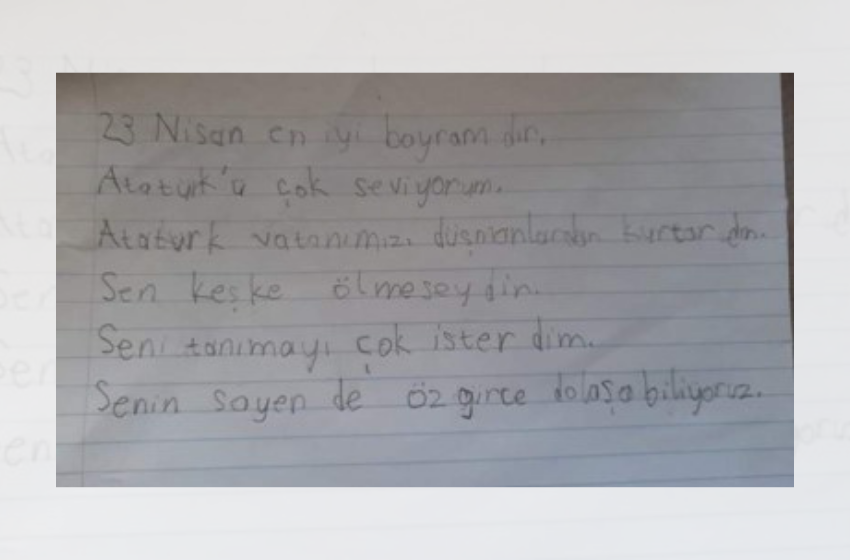 23 Nisan en iyi bayram dır.
Atatürk'ü çok seviyorum.
Atatürk vatanımızı düşmanlardan kurtar dın.
Sen keşke ölmesey din.
Seni tanımayı çok ister dim.
Senin sayen de özgirce dolaşabiliyoruz.